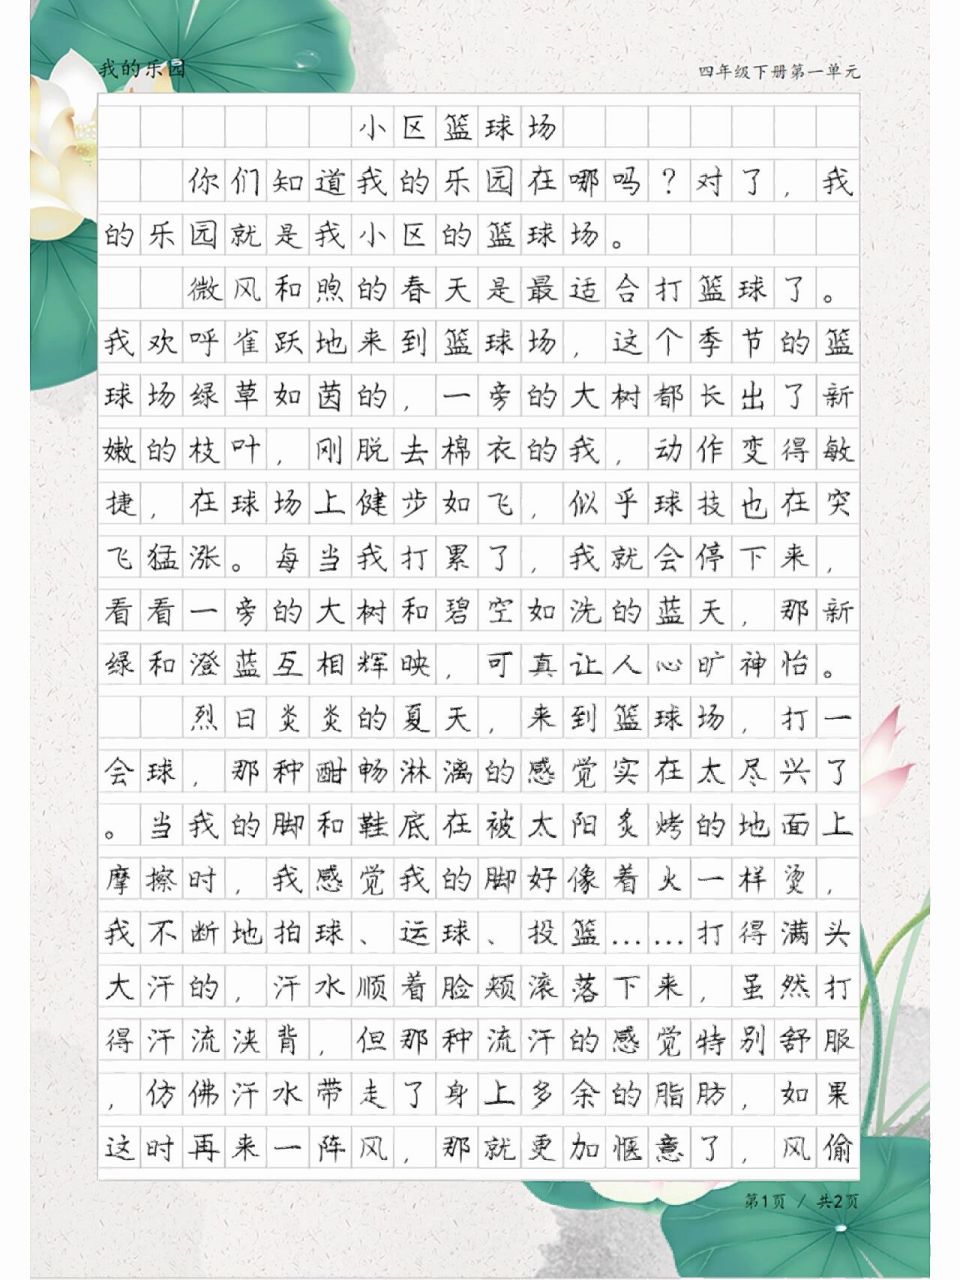 我的乐园
四年级下册第一单元
小区篮球场
你们知道我的乐园在哪吗?对了,我
的乐园就是我小区的篮球场。
微风和煦的春天是最适合打篮球了。
我欢呼雀跃地来到篮球场,这个季节的篮
球场绿草如茵的,一旁的大树都长出了新
嫩的枝叶,刚脱去棉衣的我,动作变得敏
捷,在球场上健步如飞,似乎球技也在突
飞猛涨。每当我打累了,我就会停下来,
看看一旁的大树和碧空如洗的蓝天,那新
绿和澄蓝互相辉映,可真让人心旷神怡。
烈日炎炎的夏天,来到篮球场,打一
会球,那种酣畅淋漓的感觉实在太尽兴了
。当我的脚和鞋底在被太阳炙烤的地面上
摩擦时,我感觉我的脚好像着火一样烫,
我不断地拍球、运球、投篮……打得满头
大汗的,汗水顺着脸颊滚落下来,虽然打
得汗流浃背,但那种流汗的感觉特别舒服
,仿佛汗水带走了身上多余的脂肪,如果
这时再来一阵风,那就更加惬意了,风偷
第1页 / 共2页